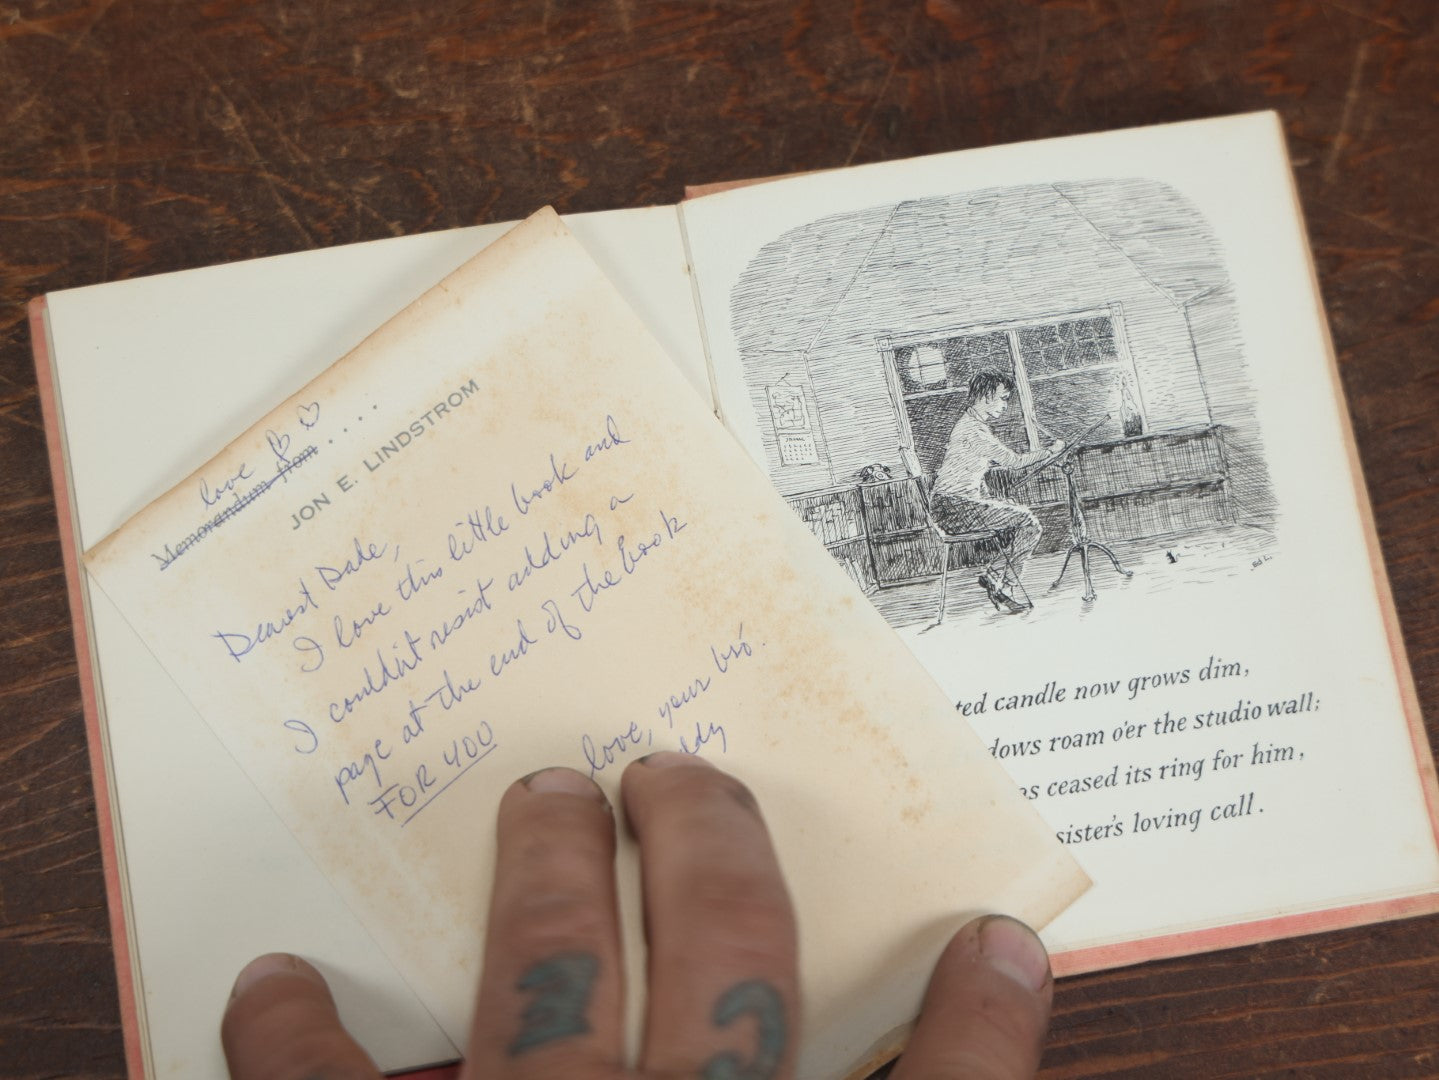 love
Memorandum from....
JON E. LINDSTROM
Dearest Dade,
I love this little book and
I couldn't resist adding a
page at the end of the book
FOR YOU
love, your bro'.
ddy
Ed L.
ted candle now grows dim,
dows roam o'er the studio wall;
as ceased its ring for him,
sister's loving call.